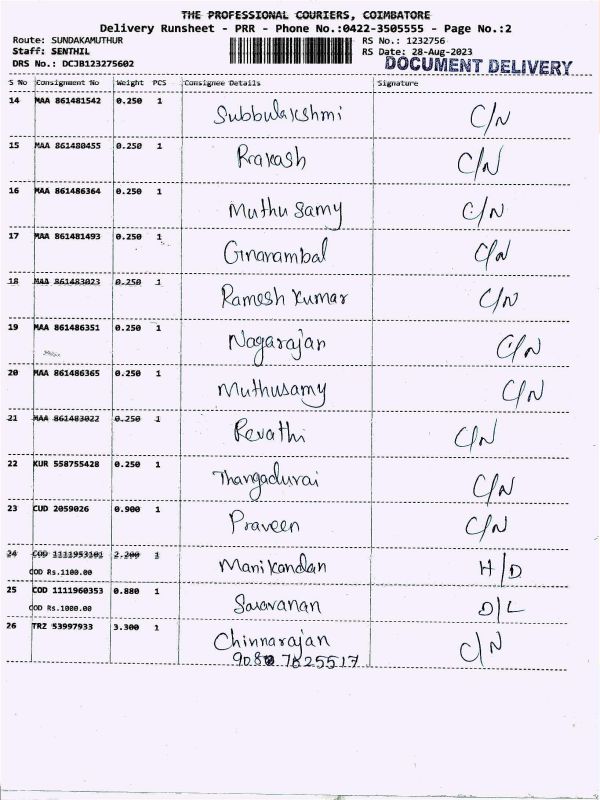 THE PROFESSIONAL COURIERS, COIMBATORE
Delivery Runsheet - PRR - Phone No.:0422-3505555 - Page No.:2
Route: SUNDAKAMUTHUR RS No.: 1232756
Staff: SENTHIL RS Date: 28-Aug-2023
DRS No.: DCJB123275602 DOCUMENT DELIVERY
S No Consignment No Weight PCS Consignee Details Signature
14 MAA 861481542 0.250 1 Subbulakshmi C/N
15 MAA 861480455 0.250 1 Prakash C/N
16 MAA 861486364 0.250 1 Muthu Samy C/N
17 MAA 861481493 0.250 1 Gnanambal C/N
18 MAA 861483023 0.250 1 Ramesh Kumar C/N
19 MAA 861486351 0.250 1 Nagarajan C/N
20 MAA 861486365 0.250 1 Muthusamy C/N
21 MAA 861483022 0.250 1 Revathi C/N
22 KUR 558755428 0.250 1 Thangadurai C/N
23 CUD 2059026 0.900 1 Praveen C/N
24 COD 1111953101 2.200 1 Manikandan H/D
COD Rs.1100.00
25 COD 1111960353 0.880 1 Saravanan D/L
COD Rs.1080.00
26 TRZ 53997933 3.300 1 Chinnarajan C/N